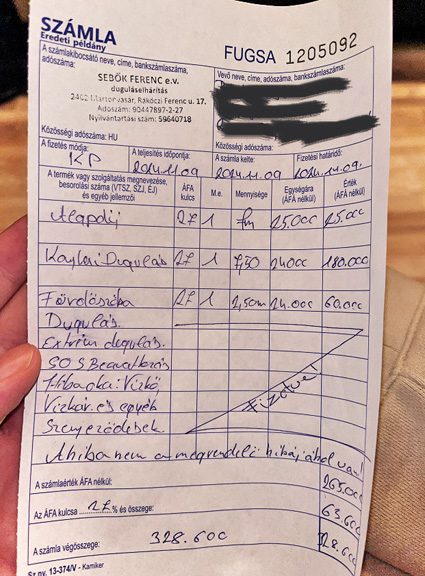 SZÁMLA
Eredeti példány
FUGSA 1205092
A számlakibocsátó neve, címe, bankszámlaszáma,
adószáma:
SEBŐK FERENC e.v.
duguláselhárítás
2462 Martonvásár, Rákóczi Ferenc u. 17.
Adószám: 90447897-2-27
Nyilvántartási szám: 59640718
Közösségi adószáma: HU
Vevő neve, címe, adószáma, bankszámlaszáma:
Közösségi adószáma:
A fizetés módja:
KP
A teljesítés időpontja:
2024.11.09
A számla kelte:
2024.11.09
Fizetési határidő:
2024.11.09.
A termék vagy szolgáltatás megnevezése, besorolási száma (VTSZ, SZJ, ÉJ) és egyéb jellemzői
ÁFA kulcs
M.e.
Mennyisége
Egységára (ÁFA nélkül)
Érték (ÁFA nélkül)
Alapdíj 27 1 fm 25.000 25.000
Konyhai Dugulás 27 1 7,50 24000 180.000
Fürdőszoba 27 1 2,50m 24.000 60.000
Dugulás.
Extrém dugulás.
SOS Beavatkozás
Hiba oka: Vízkő
Vízkár. és egyéb
Szennyeződések.
Fizetve!
A hiba nem a megrendelő hibájából van!
A számlaérték ÁFA nélkül:
265.000
Az ÁFA kulcsa 27 % és összege:
63.600
A számla végösszege:
328.600
328.600
Sz.ny. 13-374/V - Kamiker